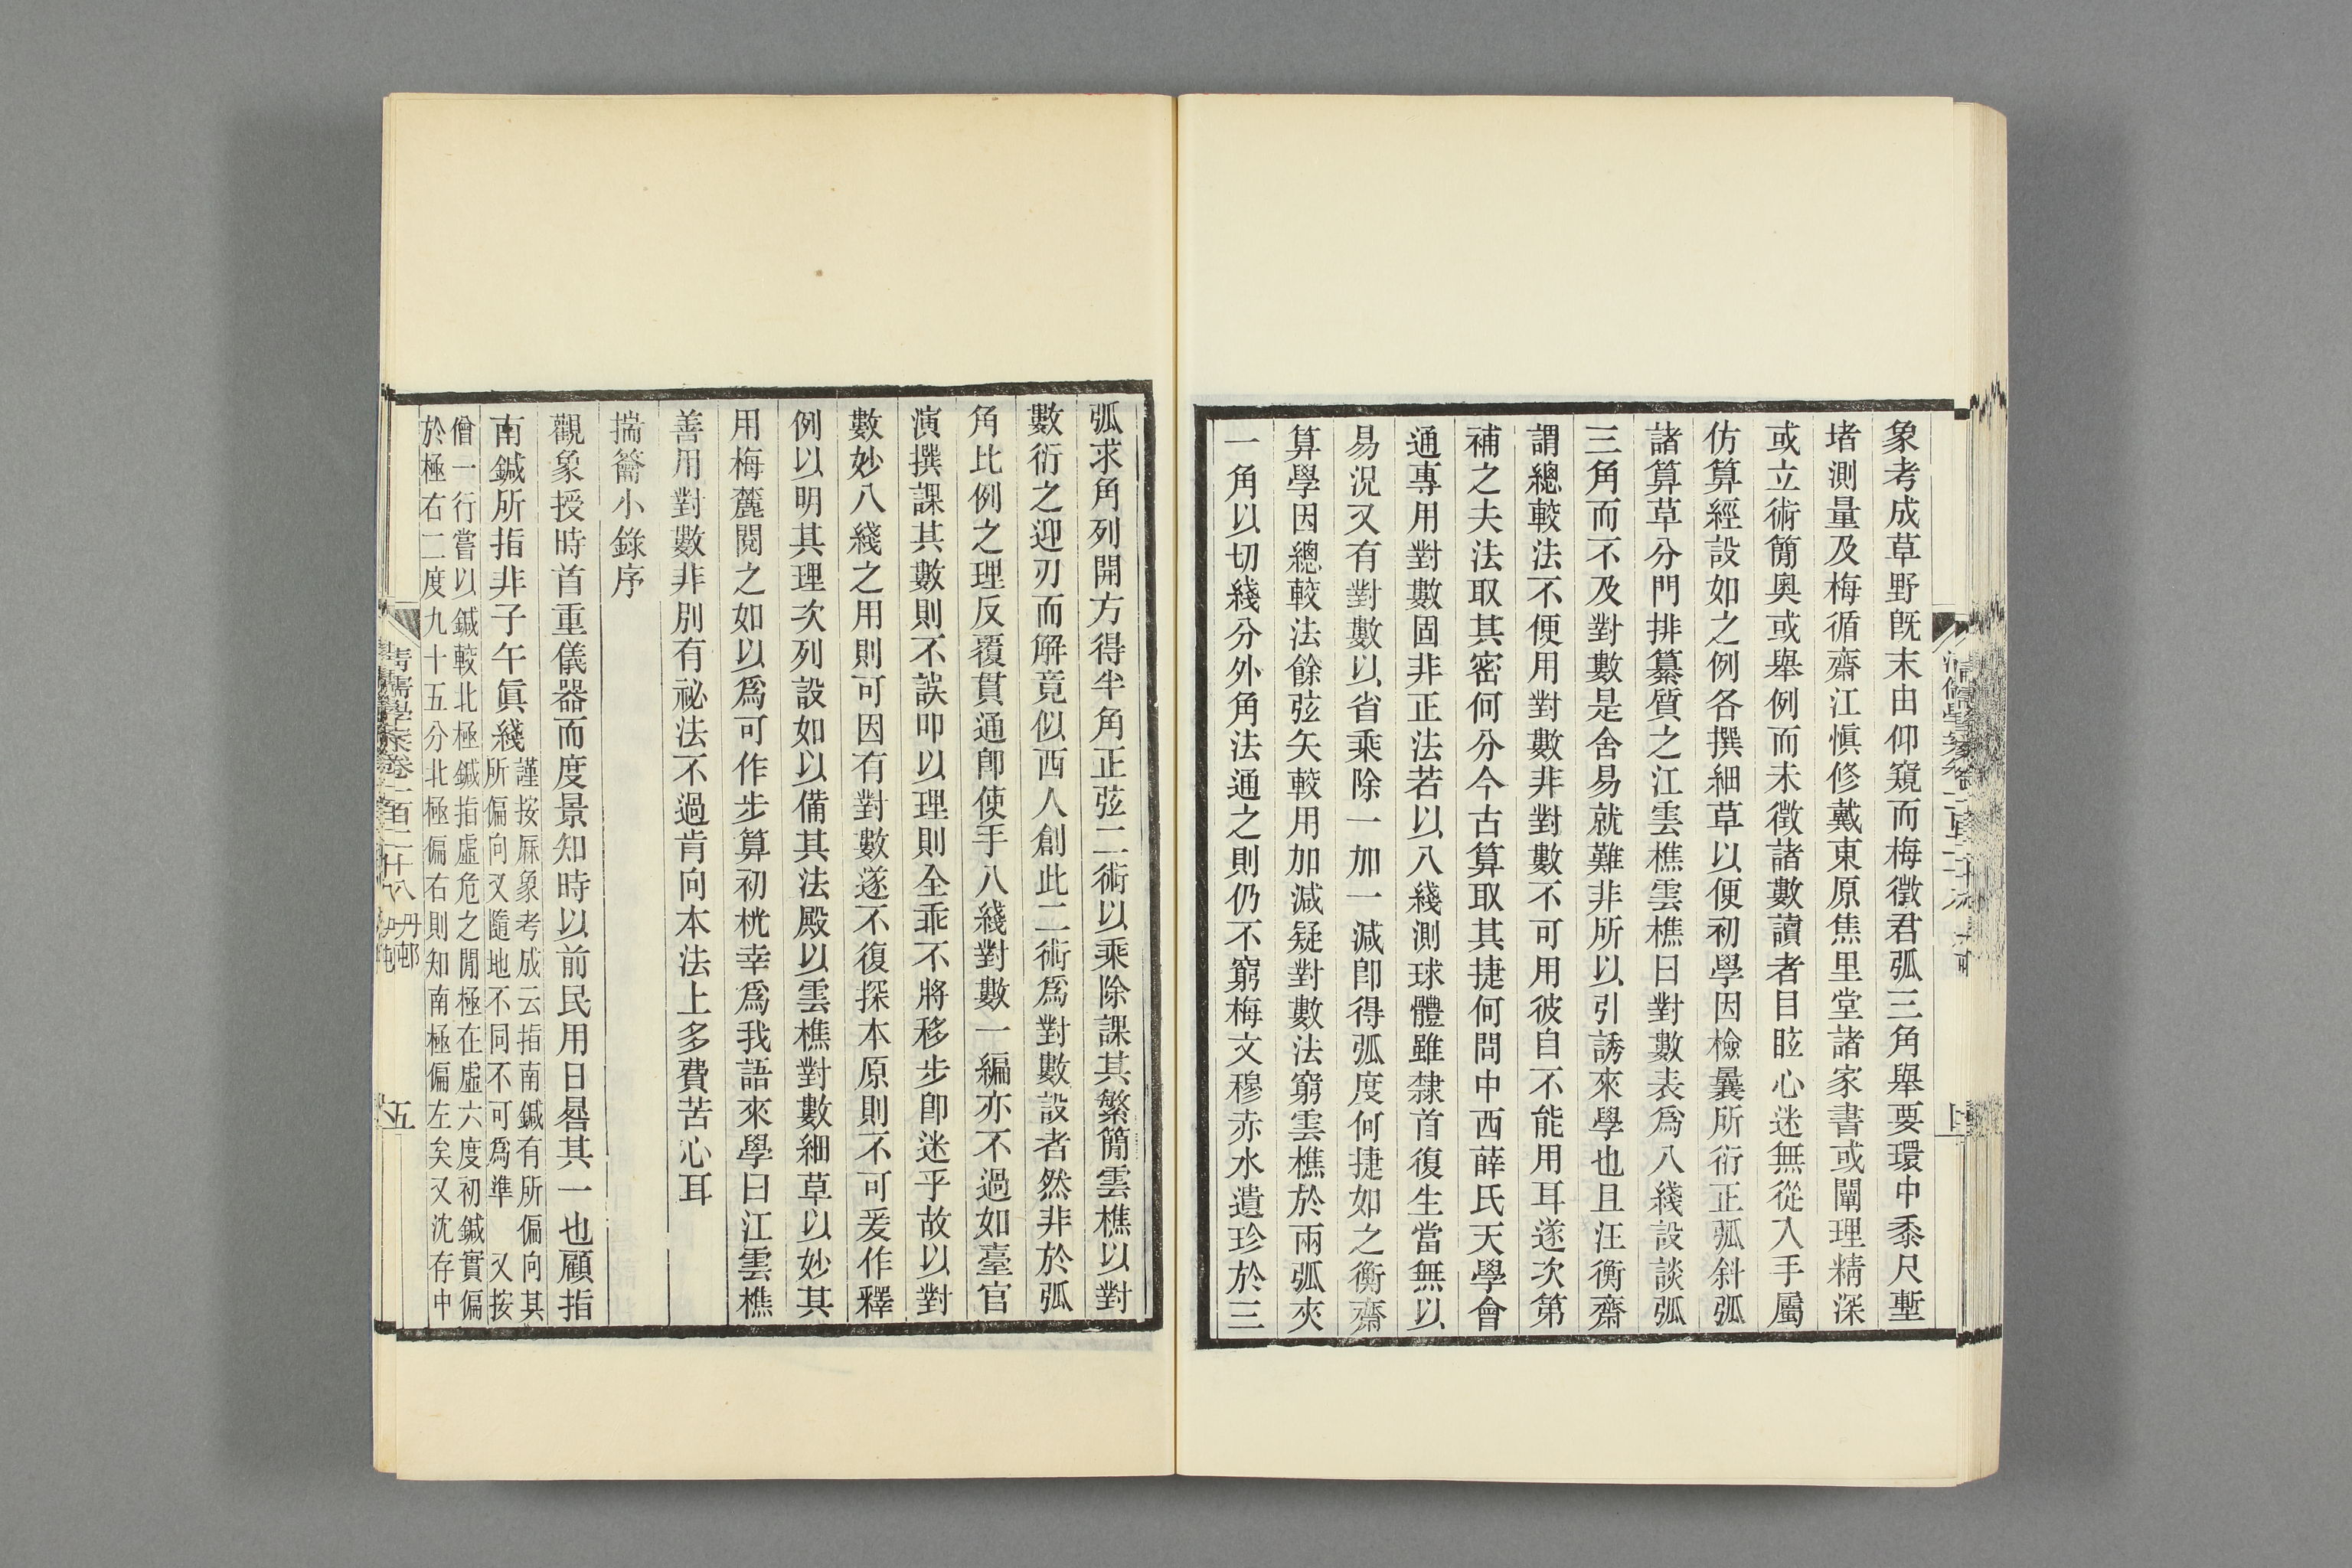 象考成草野旣末由仰窺而梅徵君弧三角舉要環中黍尺塹
堵測量及梅循齋江愼修戴東原焦里堂諸家書或闡理精深
或立術簡奧或舉例而未徵諸數讀者目眩心迷無從入手屬
仿算經設如之例各撰細草以便初學因檢曩所衍正弧斜弧
諸算草分門排纂質之江雲樵雲樵曰對數表爲八綫設談弧
三角而不及對數是舍易就難非所以引誘來學也且汪衡齋
謂總較法不便用對數非對數不可用彼自不能用耳遂次第
補之夫法取其密何分今古算取其捷何問中西薛氏天學會
通專用對數固非正法若以八綫測球體雖隸首復生當無以
易況又有對數以省乘除一加一減卽得弧度何捷如之衡齋
算學因總較法餘弦矢較用加減疑對數法窮雲樵於兩弧夾
一角以切綫分外角法通之則仍不窮梅文穆赤水遺珍於三
弧求角列開方得半角正弦二術以乘除課其繁簡雲樵以對
數衍之迎刃而解竟似西人創此二術爲對數設者然非於弧
角比例之理反覆貫通卽使手八綫對數一編亦不過如臺官
演撰課其數則不誤叩以理則全乖不將移步卽迷乎故以對
數妙八綫之用則可因有對數遂不復探本原則不可爰作釋
例以明其理次列設如以備其法殿以雲樵對數細草以妙其
用梅麓閱之如以爲可作步算初桄幸爲我語來學曰江雲樵
善用對數非別有祕法不過肯向本法上多費苦心耳
揣籥小錄序
觀象授時首重儀器而度景知時以前民用日晷其一也顧指
南鍼所指非子午眞綫
謹按厤象考成云指南鍼有所偏向其
所偏向又隨地不同不可爲準 又按
僧一行嘗以鍼較北極鍼指虛危之閒極在虛六度初鍼實偏
於極右二度九十五分北極偏右則知南極偏左矣又沈存中
清儒學案卷一百二十八 丹邨
五